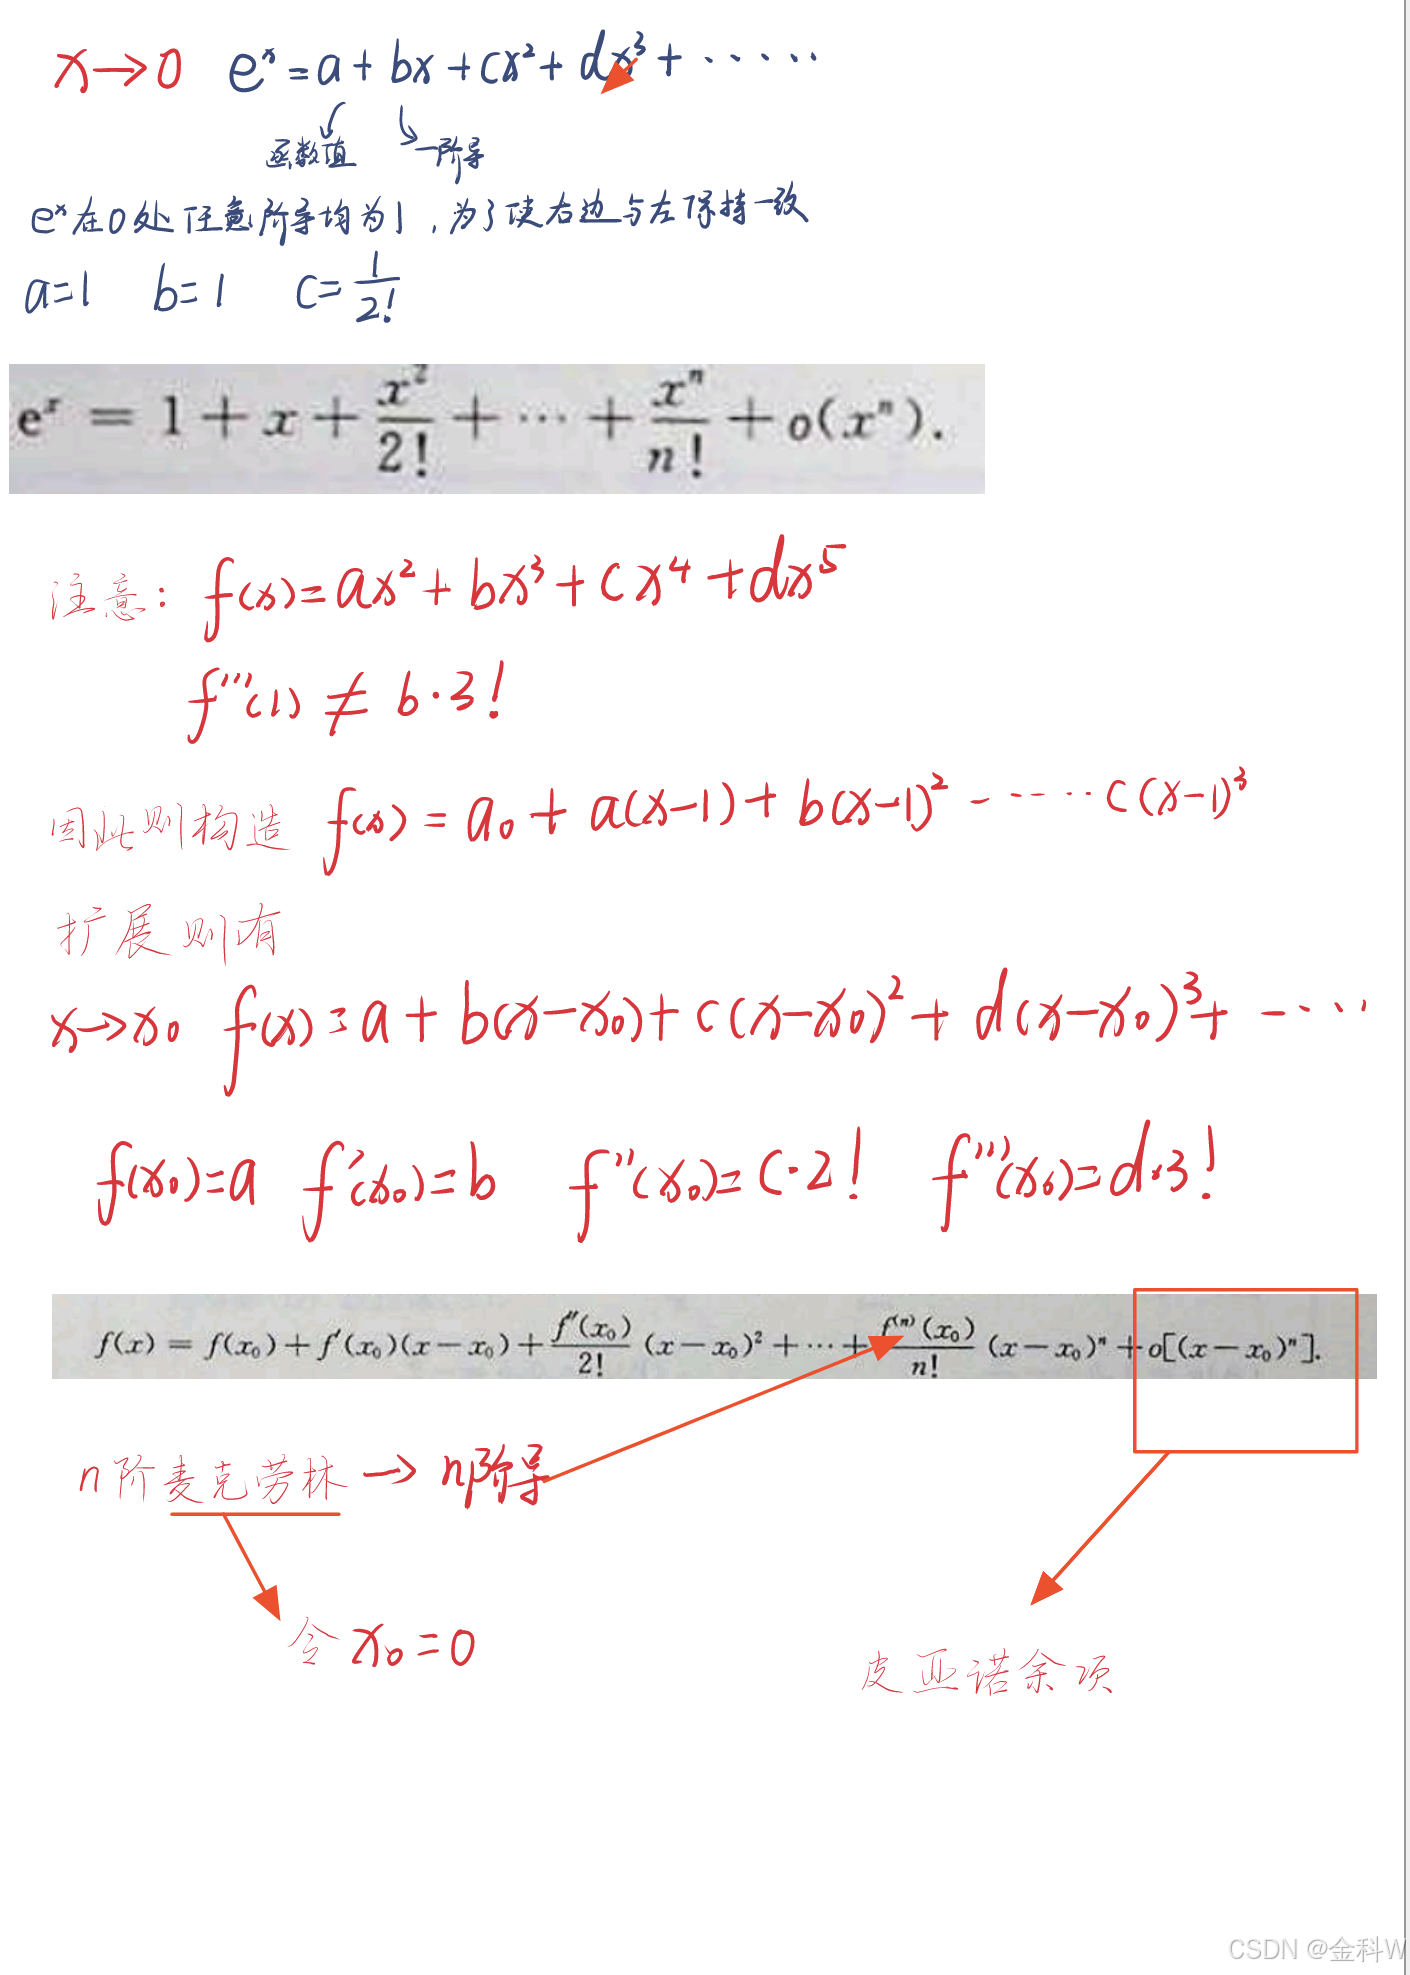 x→0 eˣ=a+bx+cx²+dx³+······
函数值 一阶导
eˣ在0处任意阶导均为1,为了使右边与左保持一致
a=1 b=1 c=1/2!
eˣ = 1 + x + x²/2! + ··· + xⁿ/n! + o(xⁿ).
注意: f(x)=ax²+bx³+cx⁴+dx⁵
f'''(1) ≠ b·3!
因此则构造 f(x) = a₀ + a(x-1)+ b(x-1)² ······ c(x-1)³
扩展则有
x→x₀ f(x)=a+b(x-x₀)+c(x-x₀)²+d(x-x₀)³+ ·····
f(x₀)=a f'(x₀)=b f''(x₀)=c·2! f'''(x₀)=d·3!
f(x) = f(x₀) + f'(x₀)(x-x₀) + f''(x₀)/2! (x-x₀)² + ··· + f⁽ⁿ⁾(x₀)/n! (x-x₀)ⁿ + o[(x-x₀)ⁿ].
n阶麦克劳林→n阶导
令x₀=0
皮亚诺余项
CSDN @金科W